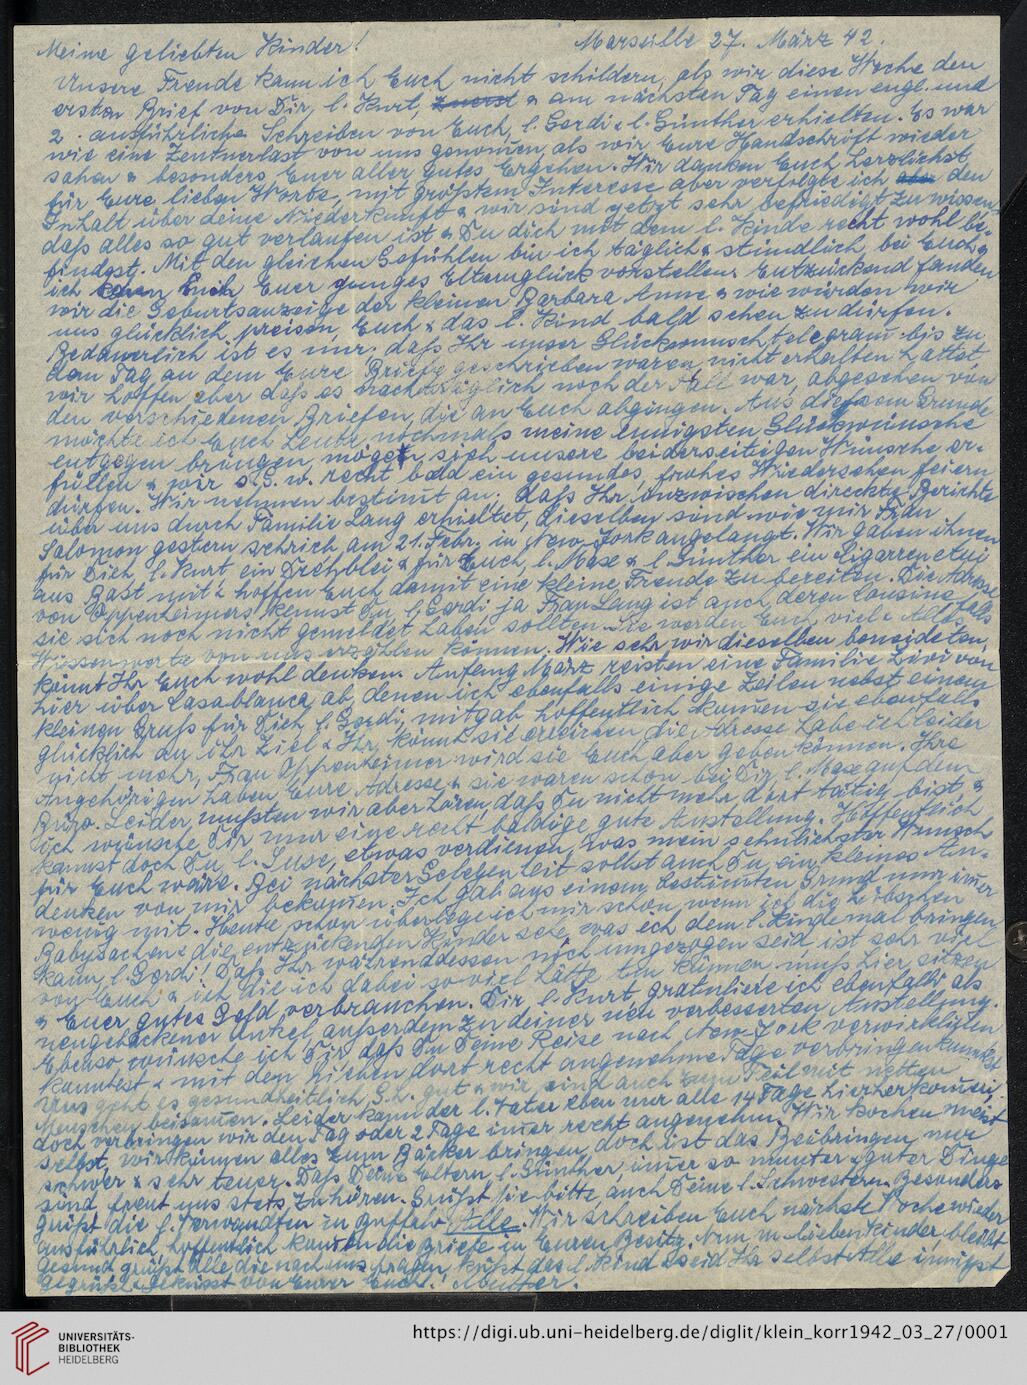 Marseille 27. März 42.
Meine geliebten Kinder!
Unsere Freude kann ich Euch nicht schildern, als wir diese Woche den
ersten Brief von Dir, l. Kurt, & am nächsten Tag einen engl. und
2. ausführliche Schreiben von Euch, l. Gerdi & l. Günther erhielten. Es war
wie eine Zentnerlast von uns genom̅en, als wir Eure Handschrift wieder
sahen & besonders Euer aller gutes Ergehen. Wir danken Euch herzlichst
für Eure lieben Worte, mit größtem Interesse aber verfolgte ich den
Inhalt über deine Niederkunft & wir sind jetzt sehr befriedigt zu wissen,
daß alles so gut verlaufen ist & Du dich mit dem l. Kinde recht wohl be-
findest. Mit den gleichen Gefühlen bin ich täglich & stündlich bei Euch &
ich Euer junges Elternglück vorstellen. Entzückend fanden
wir die Geburtsanzeige der kleinen Barbara Anne & wie würden wir
uns glücklich preisen, Euch & das l. Kind bald sehen zu dürfen.
Bedauerlich ist es nur, daß Ihr unser Glückwunschtelegram̅ bis zu
dem Tag an dem Eure Briefe geschrieben waren, nicht erhalten hattet,
wir hoffen aber daß es nachträglich noch der Fall war, abgesehen von
den verschiedenen Briefen, die an Euch abgingen. Aus diesem Grunde
möchte ich Euch heute nochmals meine innigsten Glückwünsche
entgegen bringen, mögen sich unsere beiderseitigen Wünsche er-
füllen & wir s. G. w. recht bald ein gesundes, frohes Wiedersehen feiern
dürfen. Wir nehmen bestim̅t an, daß Ihr inzwischen direckte Berichte
über uns durch Familie Lang erhieltet, dieselben sind wie mir Frau
Salomon gestern schrieb, am 21. Febr. in New York angelangt. Wir gaben ihnen
für Dich, l. Kurt, ein Drehblei & für Euch, l. Maxe & l. Günther ein Zigarrenetui
aus Bast mit & hoffen Euch damit eine kleine Freude zu bereiten. Die Adresse
von Oppenheimers kennst Du, l. Gerdi ja Frau Lang ist auch deren Cousine, falls
sie sich noch nicht gemeldet haben sollten. Sie werden Euch viel & Alles
Wissenwerte von uns erzählen können. Wie sehr wir dieselben beneideten,
könnt Ihr Euch wohl denken. Anfang März reisten eine Familie von
hier über Casablanca ab, denen ich ebenfalls einige Zeilen nebst einem
kleinen Gruß für Dich, l. Gerdi, mitgab, hoffentlich kom̅en sie ebenfalls
glücklich an ihr Ziel & Ihr könnt sie erreichen, die Adresse habe ich leider
nicht mehr, Frau Oppenheimer wird sie Euch aber geben können. Ihre
Angehörigen haben Eure Adresse & sie waren schon bei Dir, l. Maxe auf dem
Büro. Leider mußten wir aber hören, daß Du nicht mehr dort tätig bist &
ich wünsche Dir nur eine recht baldige gute Anstellung. Hoffentlich
kannst doch Du, l. Suse, etwas verdienen, was mein sehnlichster Wunsch
für Euch wäre. Bei nächster Gelegenheit sollst auch Du ein kleines An-
denken von mir bekom̅en. Ich gab aus einem bestim̅ten Grund nur im̅er
wenig mit. Heute schon überlege ich mir schon, wenn ich die hübschen
Babysachen & die entzückenden Kinder sehe, was ich dem l. Kinde mal bringen
kann, l. Gerdi! Daß Ihr währenddessen noch umgezogen seid ist sehr viel
von Euch & ich, die ich dabei so viel hätte tun können, muß hier sitzen
& Euer gutes Geld verbrauchen. Dir, l. Kurt, gratuliere ich ebenfalls als
neugebackener Onkel, außerdem zu deiner neu verbesserten Anstellung.
Ebenso wünsche ich Dir, daß Du Deine Reise nach New York verwirklichen
kanntest & mit den lieben dort recht angenehme Tage verbringen kannst.
Uns geht es gesundheitlich, G. L. gut & wir sind auch zum Teil mit netten
Menschen beisam̅en. Leider kann der l. Vater eben nur alle 14 Tage hierher kom̅en,
doch verbringen wir den Tag oder 2 Tage im̅er recht angenehm. Wir kochen meist
selbst, wir können alles zum Bäcker bringen, doch ist das Beibringen nur
schwer & sehr teuer. Daß Deine Eltern, l. Günther, im̅er so munter & guter Dinge
sind, freut uns stets zu hören. Grüßt sie bitte, auch Deine l. Schwestern. Besonders
grüßt die l. Verwandten in Buffalo Alle. Wir schreiben Euch nächste Woche wieder
ausführlich, hoffentlich kom̅en die Briefe in Euren Besitz. Nun m. lieben Kinder, bleibt
gesund, grüßt alle, die nach uns fragen, küßt das l. Kind & seid Ihr selbst Alle innigst
gegrüßt & geküsst von Eurer Euch l. Mutter.
UNIVERSITÄTS-
BIBLIOTHEK
HEIDELBERG
https://digi.ub.uni-heidelberg.de/diglit/klein_korr1942_03_27/0001